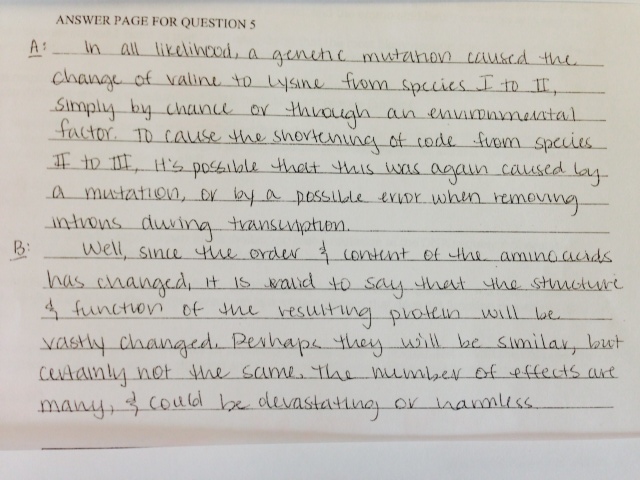 ANSWER PAGE FOR QUESTION 5
A: In all likelihood, a genetic mutation caused the
change of valine to lysine from species I to II,
simply by chance or through an environmental
factor. To cause the shortening of code from species
II to III, it's possible that this was again caused by
a mutation, or by a possible error when removing
introns during transcription.
B: Well, since the order & content of the amino acids
has changed, it is valid to say that the structure
& function of the resulting protein will be
vastly changed. Perhaps they will be similar, but
certainly not the same. The number of effects are
many, & could be devastating or harmless.